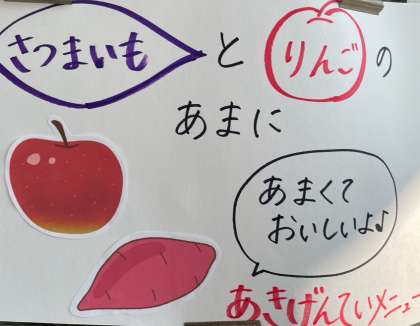 さつまいもとりんごの
あまに
あまくて
おいしいよ♪
あきげんていメニュー